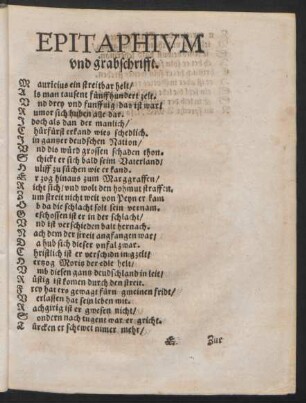 EPITAPHIVM
vnd grabschrifft.
M auricius ein streitbar helt/
A ls man tausent fünffhundert zelt.
V nd drey vnd funffzig/ das ist war/
R umor sich huben alle dar.
I doch als dan der manlich/
T hürfürst erkand wies schedlich.
I in gantzer deudschen Nation/
V nd die würd grossen schaden thon.
S chickt er sich bald seim Vaterland/
H ulff zu süchen wie er kand.
E r zog hinaus zum Marggraffen/
R icht sich/ vnd wolt den hohmut straffen.
T um streit nicht weit von Peyn er kam
O b da die schlacht solt sein vernam.
G eschossen ist er in der schlacht/
V nd ist verscheiden balt hernach.
N ach dem der streit angfangen war/
D a hub sich dieser vnfal zwar.
C hristlich ist er verschiden gzelt/
H ertzog Moritz der edle helt/
V mb diesen gantz deudschland in leit/
R üstig ist komen durch den streit.
F rey hat ers gewagt fürn gmeinen fridt/
V erlassen hat sein leben mit.
R achgirig ist er gwesen nicht/
S ondern nach tugent war er gricht.
T ürcken er schewet nimer mehr/
Zur